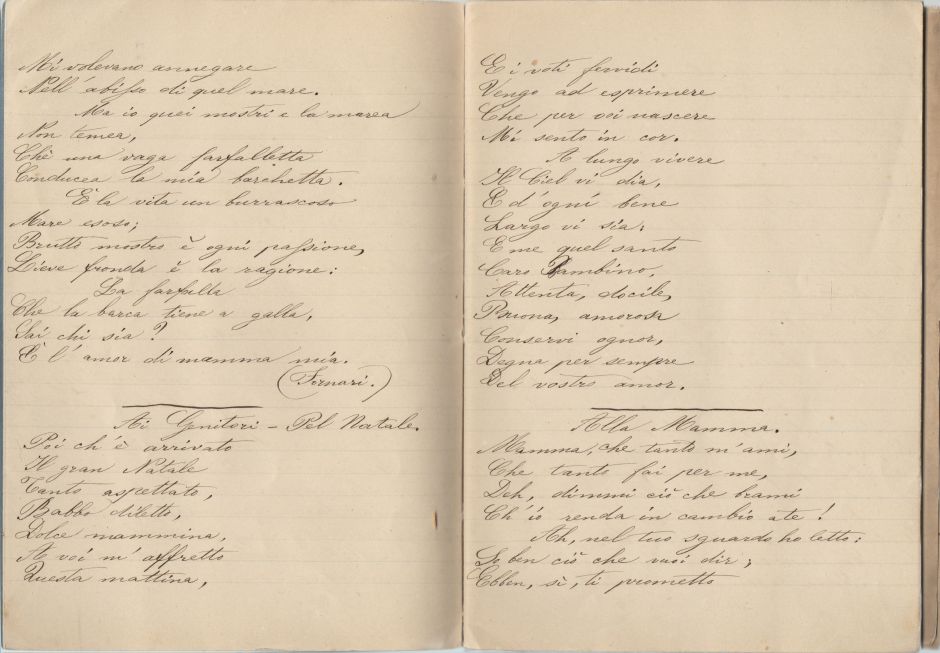 Mi volevano annegare
Nell' abisso di quel mare.
Ma io quei mostri e la marea
Non temea,
Chè una vaga farfalletta
Conducea la mia barchetta.
È la vita un burrascoso
Mare esoso;
Brutto mostro è ogni passione,
Lieve fronda è la ragione:
La farfalla
Che la barca tiene a galla,
Sai chi sia?
È l' amor di mamma mia.
(Fornari.)
Ai Genitori - Pel Natale.
Poi ch' è arrivato
Il gran Natale
Tanto aspettato,
Babbo diletto,
Dolce mammina,
A voi m' affretto
Questa mattina,
E i voti fervidi
Vengo ad esprimere
Che per voi nascere
Mi sento in cor.
A lungo vivere
Il Ciel vi dia,
E d' ogni bene
Largo vi sia;
E me quel santo
Caro Bambino,
Attenta, docile,
Buona, amorosa
Conservi ognor,
Degna per sempre
Del vostro amor.
Alla Mamma.
Mamma, che tanto m' ami,
Che tanto fai per me,
Deh, dimmi ciò che brami
Ch' io renda in cambio a te!
Ah, nel tuo sguardo ho letto:
So ben ciò che vuoi dir;
Ebben, sì, ti prometto